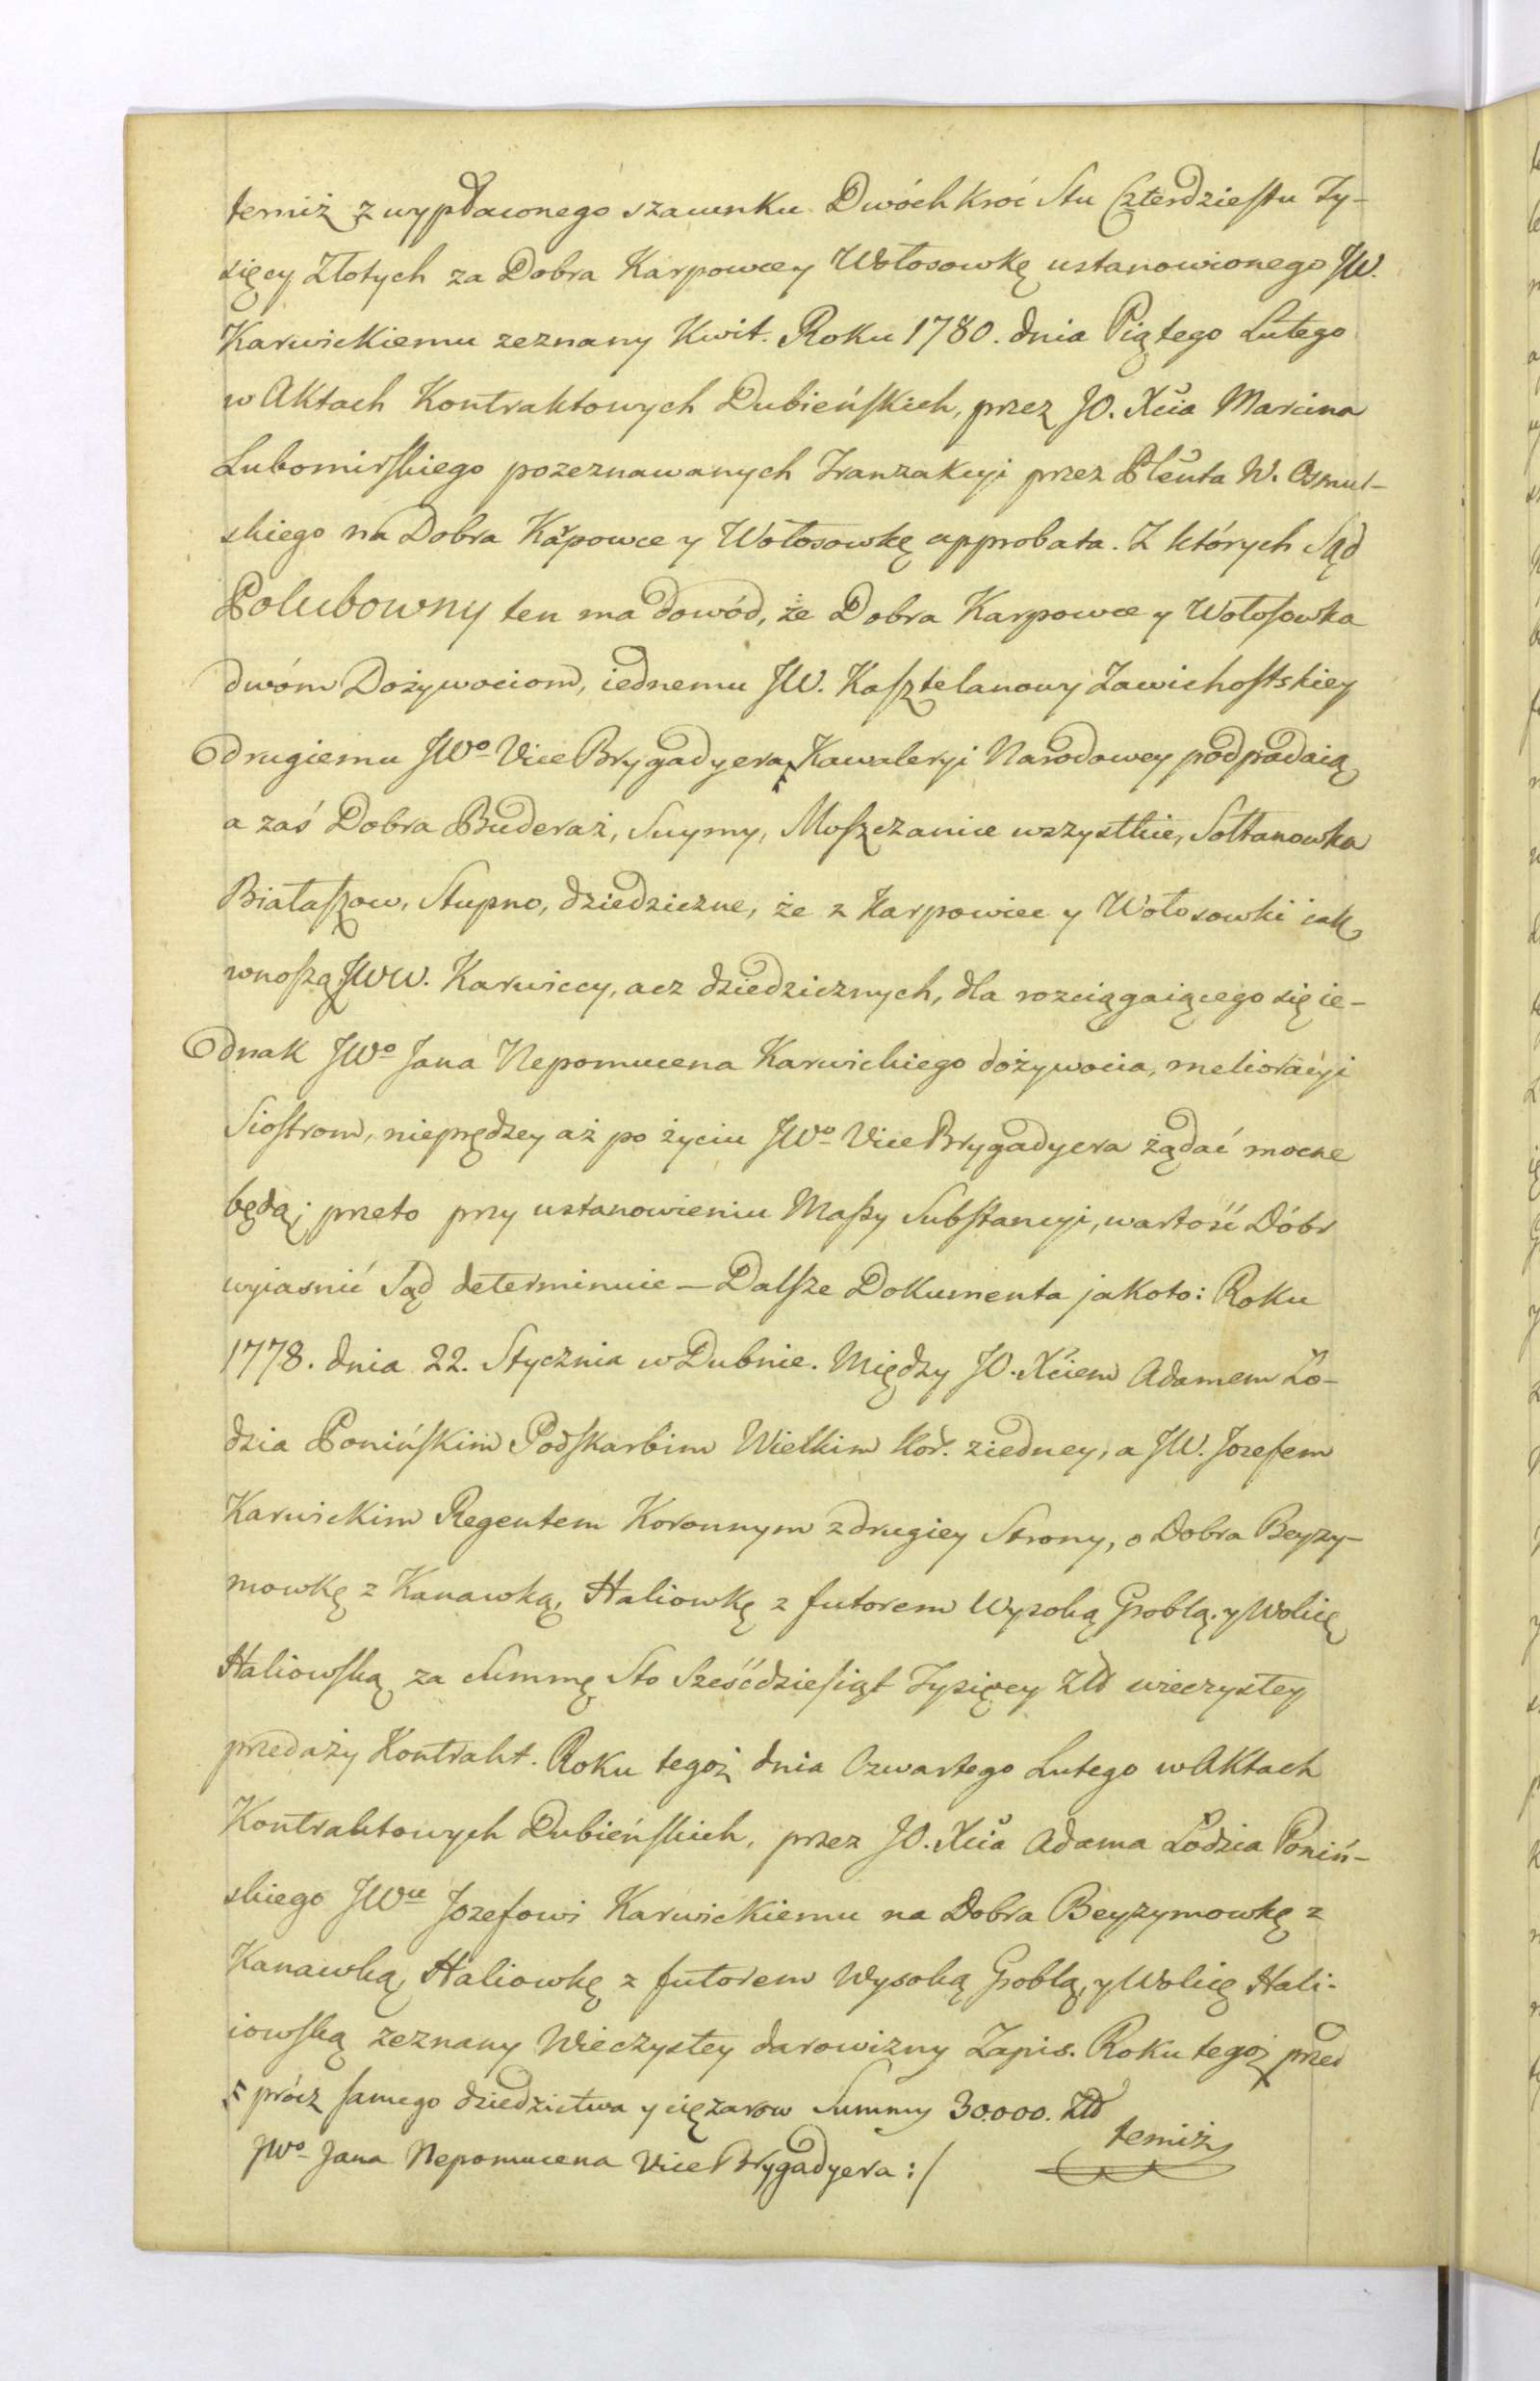 temiż z wypłaconego szacunku Dwóch Kroć Stu Czterdziestu Ty-
sięcy Złotych za Dobra Karpowce y Wołosowkę ustanowionego JW.
Karwickiemu zeznany Kwit. Roku 1780. dnia Piątego Lutego
w Aktach Kontraktowych Dubieńskich, przez JO. Xcia Marcina
Lubomirskiego pozeznawanych Tranzakcyi przez Plenta W. Osmul-
skiego na Dobra Karpowce y Wołosowkę approbata. Z których Sąd
Polubowny ten ma dowód, że Dobra Karpowce y Wołosowka
dwóm Dożywociom, iednemu JW. Kasztelanowy Zawichostskiey
drugiemu JWo Vice Brygadyera Kawaleryi Narodowey podpadaią
a zaś Dobra Buderaż, Suymy, Moszczanice wszystkie, Sołtanowka
Białaszow, Stupno, dziedziczne, że z Karpowiec y Wołosowki iak
wnoszą JWW. Karwiccy, acz dziedzicznych, dla rozciągaiącego się ie-
dnak JWo Jana Nepomucena Karwickiego dożywocia, melioracyi
Siostrom, nieprędzey aż po życiu JWo Vice Brygadyera żądać mocne
będą; przeto przy ustanowieniu Massy Substancyi, wartość Dóbr
wyiasnić Sąd determinuie — Dalsze Dokumenta jakoto: Roku
1778. dnia 22. Stycznia w Dubnie. Między JO. Xciem Adamem Ło-
dzia Ponińskim Podskarbim Wielkim Kor. ziedney, a JW. Jozefem
Karwickim Regentem Koronnym z drugiey Strony, o Dobra Beyzy-
mowkę z Kanawką, Haliowkę z futorem Wysoką Groblą, y Wolicę
Haliowską za Summę Sto Sześćdziesiąt Tysięcy Złł wieczystey
przedaży Kontrakt. Roku tegoż dnia Czwartego Lutego w Aktach
Kontraktowych Dubieńskich, przez JO. Xcia Adama Łodzia Poniń-
skiego JWu Jozefowi Karwickiemu na Dobra Beyzymowkę z
Kanawką, Haliowkę z futorem Wysoką Groblą, y Wolicę Hali-
iowską zeznany Wieczystey darowizny Zapis. Roku tegoż przed
prócz samego dziedzictwa y ciężarow Summy 30.000. Złł
temiż
JWo Jana Nepomucena Vice Brygadyera :/